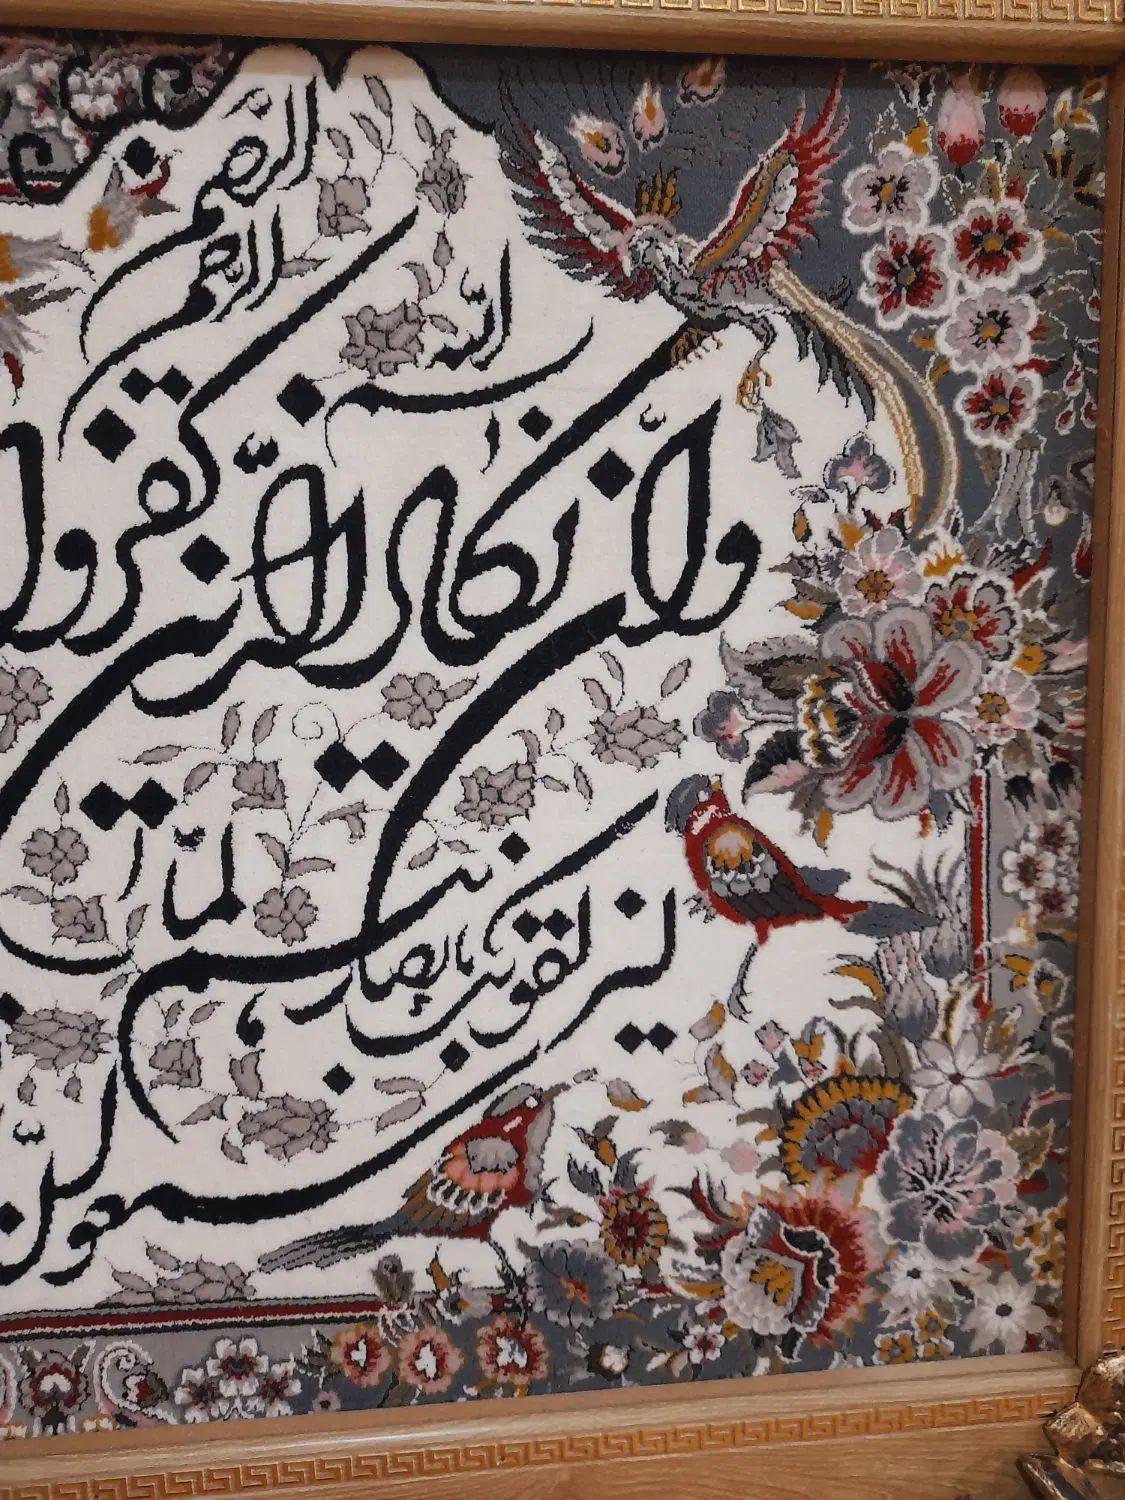 الرحمن
الرحیم
الله
وان یکاد الذین کفروا
لیزلقونک بابصارهم لما
سمعوا